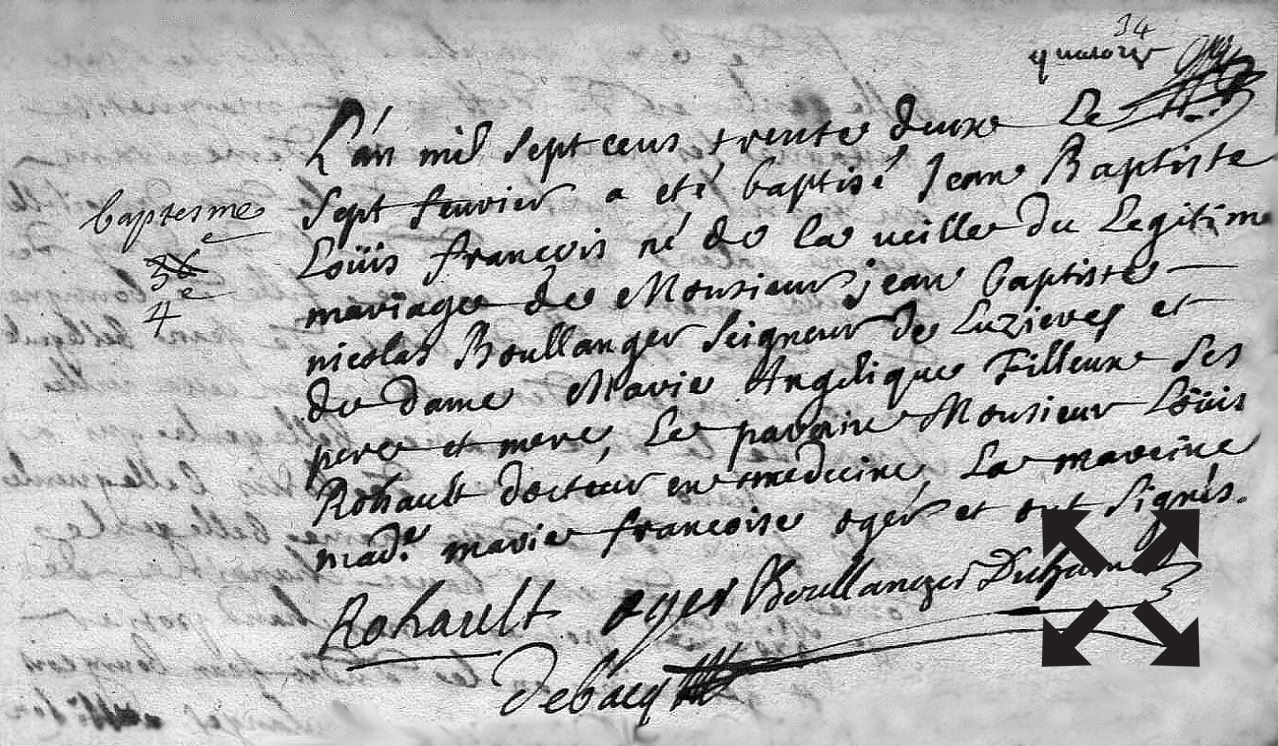 14
quatorze
L'an mil sept cens trente deux Le
sept feuvrier a eté baptisé Jean Baptiste
Loüis françois né de la veille du Legitime
mariage de Monsieur jean baptiste
nicolas Boullanger seigneur de Luzieres et
de dame Marie Angelique Filleux ses
pere et mere, Le paraine Monsieur Loüis
Rohault docteur en medecine, La mareine
mad.e marie francoise oger et ont signés.
baptesme
36
4e
Rohault oger Boullanger Duhamel
Debacq